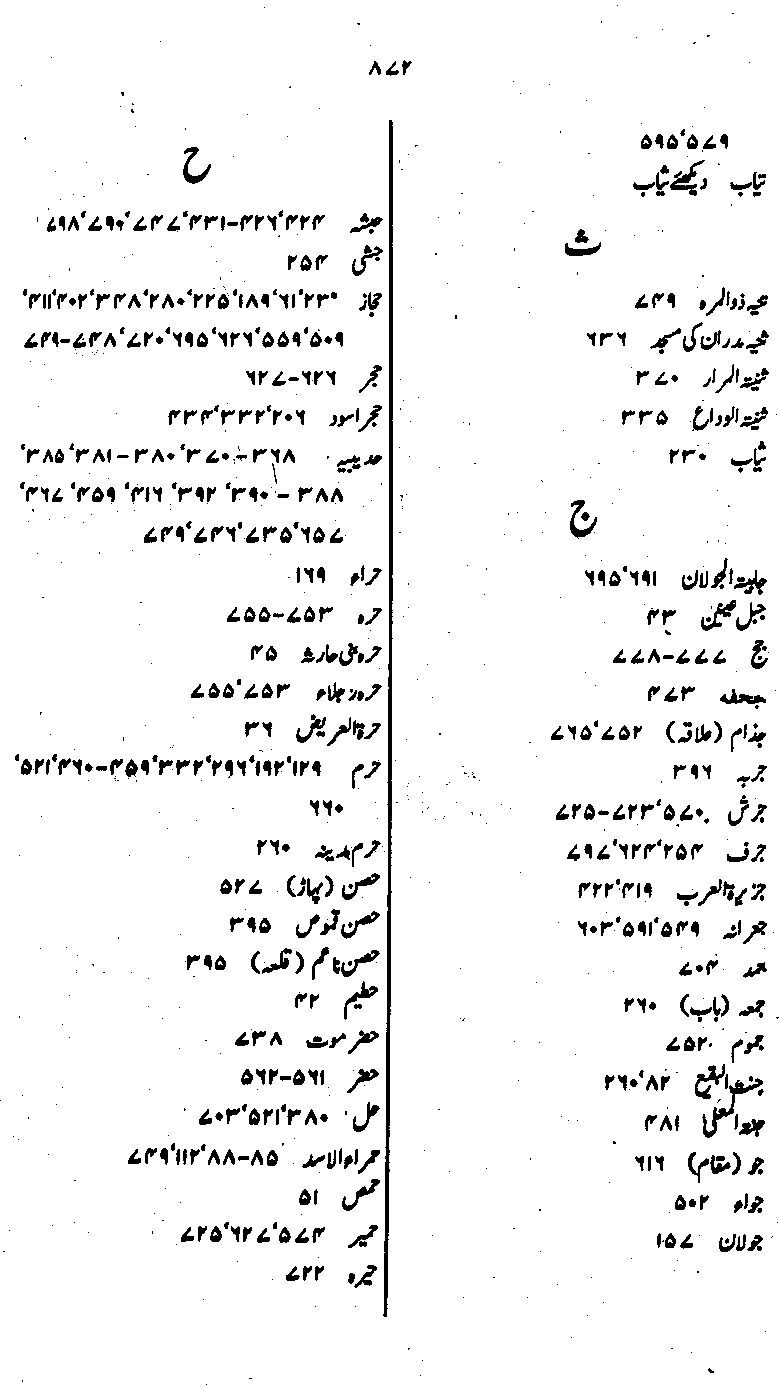 ۸۷۲
۵۷۹‘۵۹۵
تیاب دیکھئے ثیاب
ث
ثنیہ ذوالمرہ ۷۴۹
ثنیہ مدران کی مسجد ۶۳۶
ثنیۃ المرار ۳۷۰
ثنیۃ الوداع ۳۳۵
ثیاب ۲۳۰
ج
جابیۃ الجولان ۶۹۱‘۶۹۵
جبل عینین ۴۳
جج ۷۷۷-۷۷۸
جحفہ ۴۷۳
جذام (علاقہ) ۷۵۲‘۷۶۵
جربہ ۳۹۶
جرش ۵۷۰‘۷۲۳-۷۲۵
جرف ۲۵۴‘۶۲۴‘۷۹۷
جزیرۃ العرب ۴۱۹‘۴۲۲
جعرانہ ۵۴۹‘۵۹۱‘۶۰۳
۷۰۴
جمعہ (باب) ۲۶۰
جموم ۷۵۲
جنت البقیع ۸۲‘۲۶۰
جنۃ المعلیٰ ۴۸۱
جو (مقام) ۶۱۶
جواء ۵۰۲
جولان ۱۵۷
ح
حبشہ ۴۲۴‘۴۲۶-۴۳۱‘۷۴۷‘۷۹۰‘۷۹۸
حبشی ۲۵۴
حجاز ۲۳‘۶۱‘۱۸۹‘۲۲۵‘۲۸۰‘۳۴۸‘۴۰۲‘۴۱۱‘
۵۰۹‘۵۵۹‘۶۲۶‘۶۹۵‘۷۲۰‘۷۴۸-۷۴۹
حجر ۶۲۶-۶۲۷
حجر اسود ۲۰۶‘۳۳۲‘۴۳۴
حدیبیہ ۳۶۸-۳۷۰‘۳۸۰-۳۸۱‘۳۸۵‘
۳۸۸-۳۹۰‘۳۹۲‘۴۱۶‘۴۵۹‘۴۶۷‘
۶۵۷‘۷۳۵‘۷۴۶‘۷۴۹
حراء ۱۶۹
حرہ ۷۵۳-۷۵۵
حرہ بنی حارثہ ۴۵
حرہ رجلاء ۷۵۳‘۷۵۵
حرۃ العریض ۳۶
حرم ۱۲۹‘۱۹۲‘۲۹۶‘۳۳۲‘۴۵۹-۴۶۰‘۵۲۱‘
۶۶۰
حرم مدینہ ۲۶۰
حصن (پہاڑ) ۵۲۷
حصن قموص ۳۹۵
حصن ناعم (قلعہ) ۳۹۵
حطیم ۴۲
حضر موت ۷۳۸
حضر ۵۶۱-۵۶۲
حل ۳۸۰‘۵۲۱‘۷۰۳
حمراء الاسد ۸۵-۸۸‘۱۱۲‘۷۴۹
حمص ۵۱
حمیر ۵۷۴‘۶۲۷‘۷۲۵
حیرہ ۷۲۲